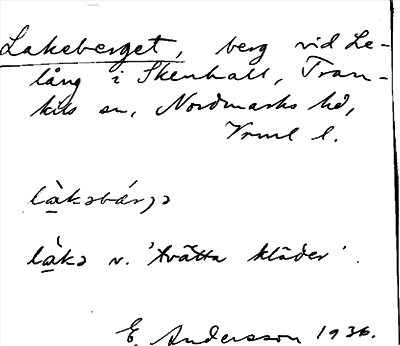 Lakeberget, berg vid Le-
lång i Skenhall, Tran-
kils sn, Nordmarks hd,
Vrml l.
làkəbárjə
làkə v. 'tvätta kläder'.
E. Andersson 1936.